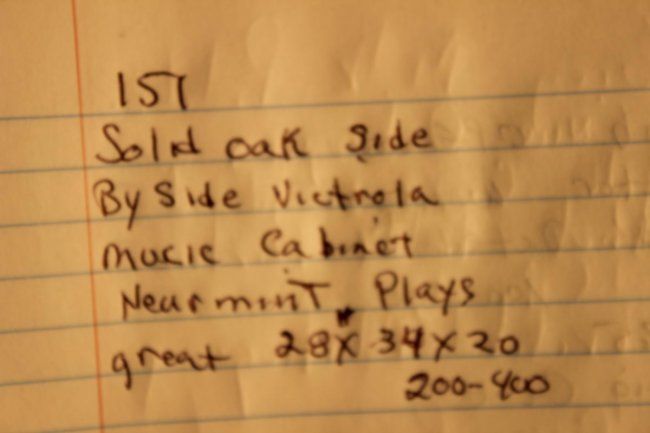 151
Solid oak Side
By Side Victrola
Music Cabinet
Near mint Plays
great 28X 34X20
200-400